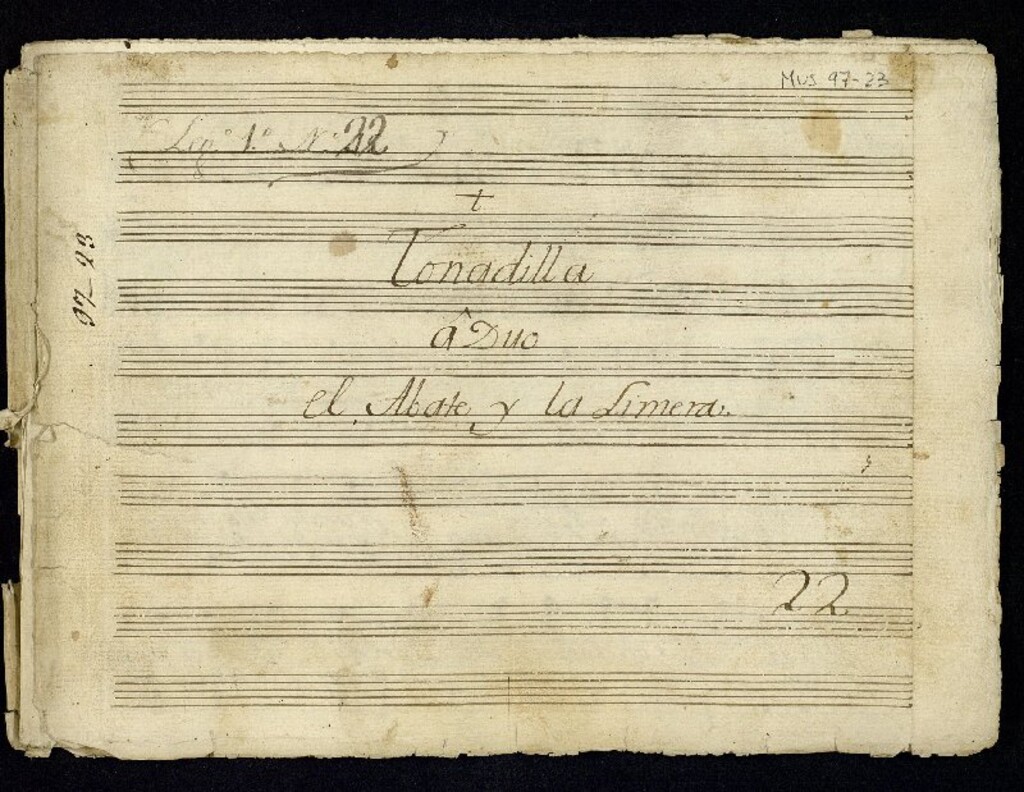 Mus 97-23
Leg.º 1.º N.º 22
t
Tonadilla
â Duo
el Abate y la Limera.
22
97-23